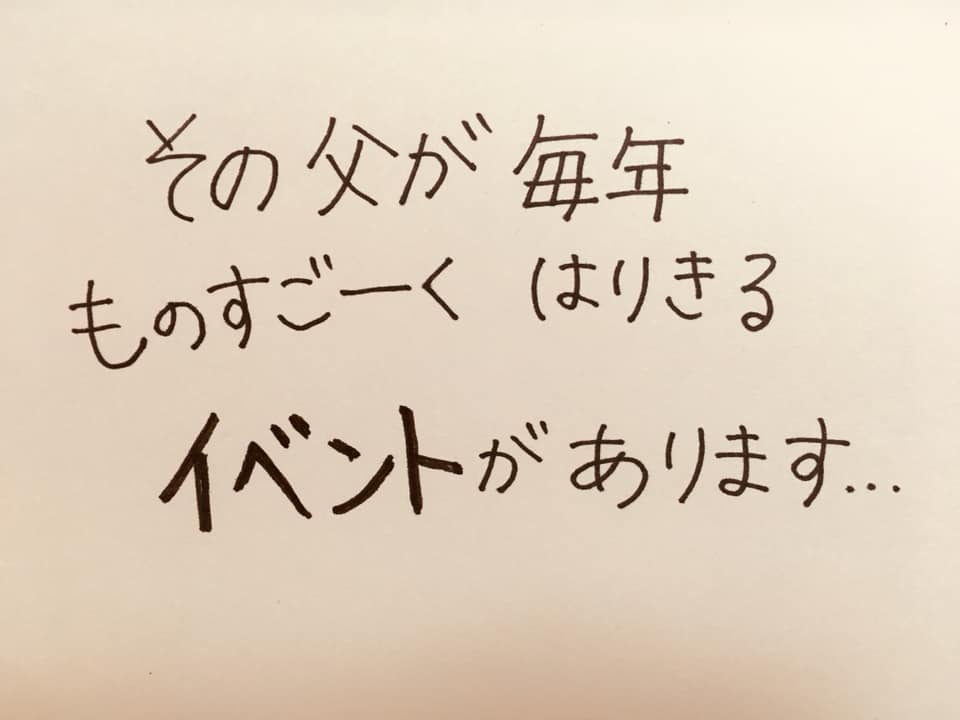 その父が毎年
ものすごーく はりきる
イベントがあります...